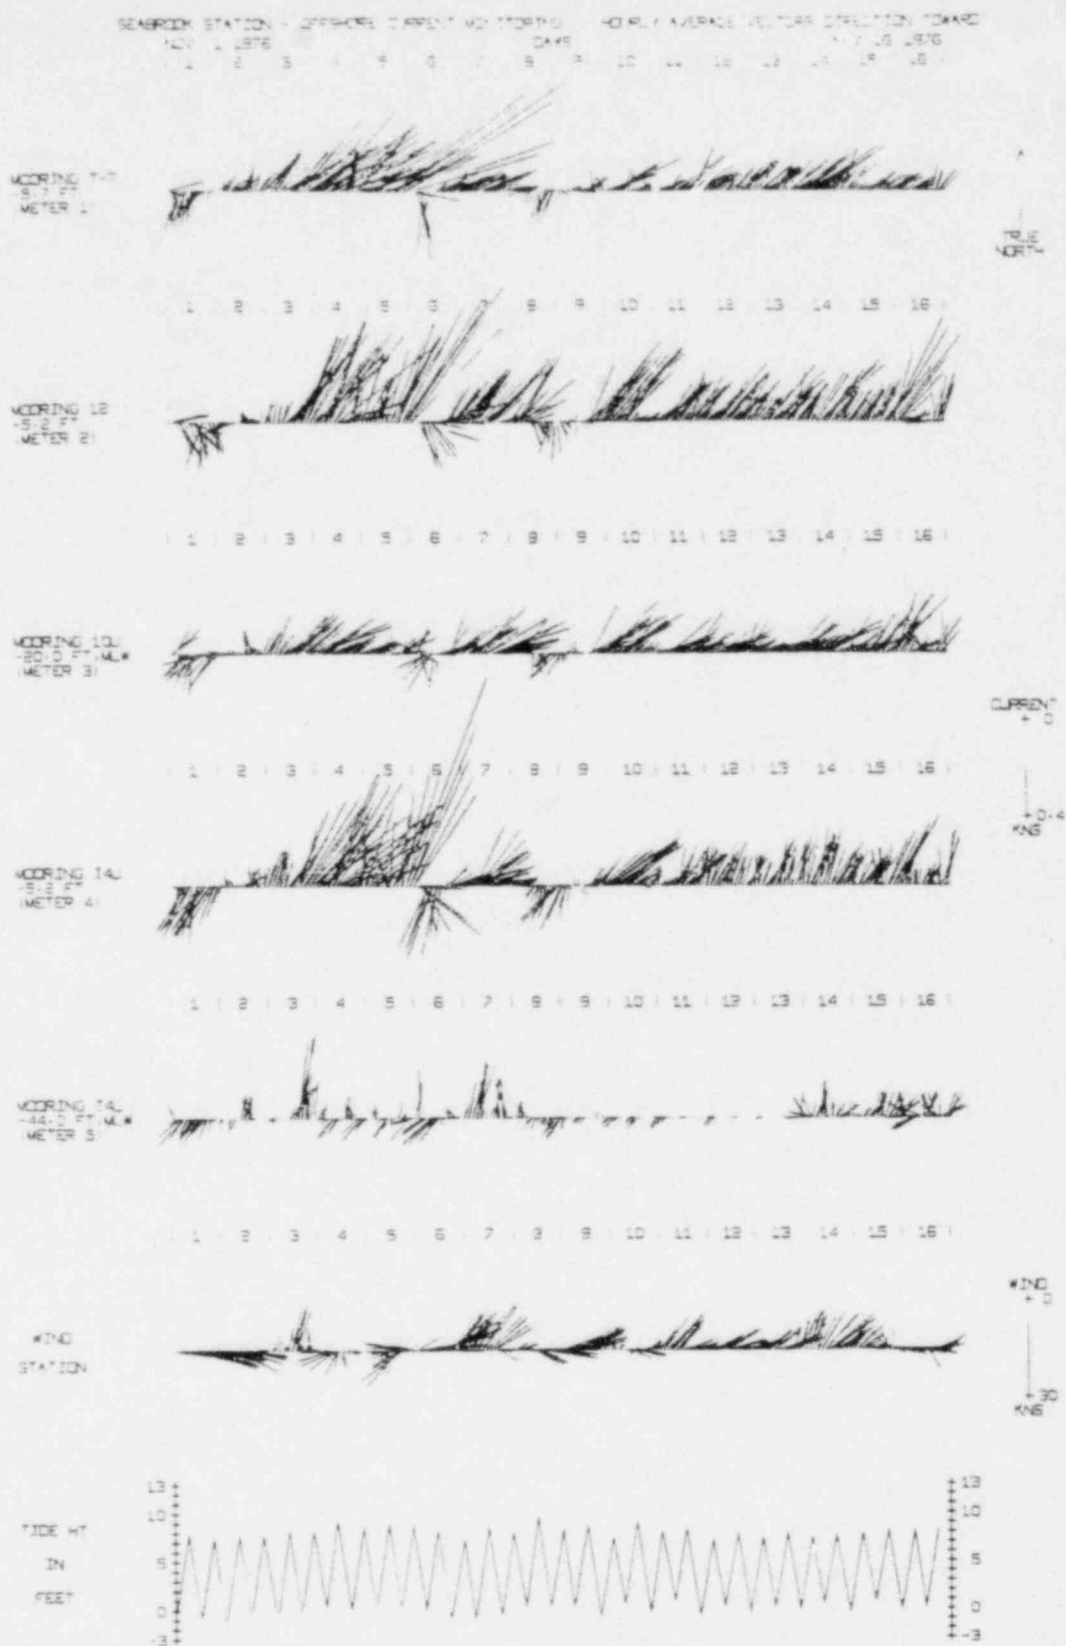 SEABROOK STATION - OFFSHORE CURRENT MONITORING HOURLY AVERAGE VECTORS DIRECTION TOWARD
NOV 1 1976 DAYS 16 1976
1 2 3 4 5 6 7 8 9 10 11 12 13 14 15 16
MOORING
(METER 1)
TRUE
NORTH
1 2 3 4 5 6 7 8 9 10 11 12 13 14 15 16
MOORING 12
(METER 2)
1 2 3 4 5 6 7 8 9 10 11 12 13 14 15 16
MOORING
(METER 3)
CURRENT
+ 0
1 2 3 4 5 6 7 8 9 10 11 12 13 14 15 16
+0.4
KNS
MOORING
(METER 4)
1 2 3 4 5 6 7 8 9 10 11 12 13 14 15 16
MOORING
(METER 5)
1 2 3 4 5 6 7 8 9 10 11 12 13 14 15 16
WIND
+ 0
WIND
STATION
+30
KNS
13 13
10 10
TIDE HT
IN 5 5
FEET
0 0
-3 -3